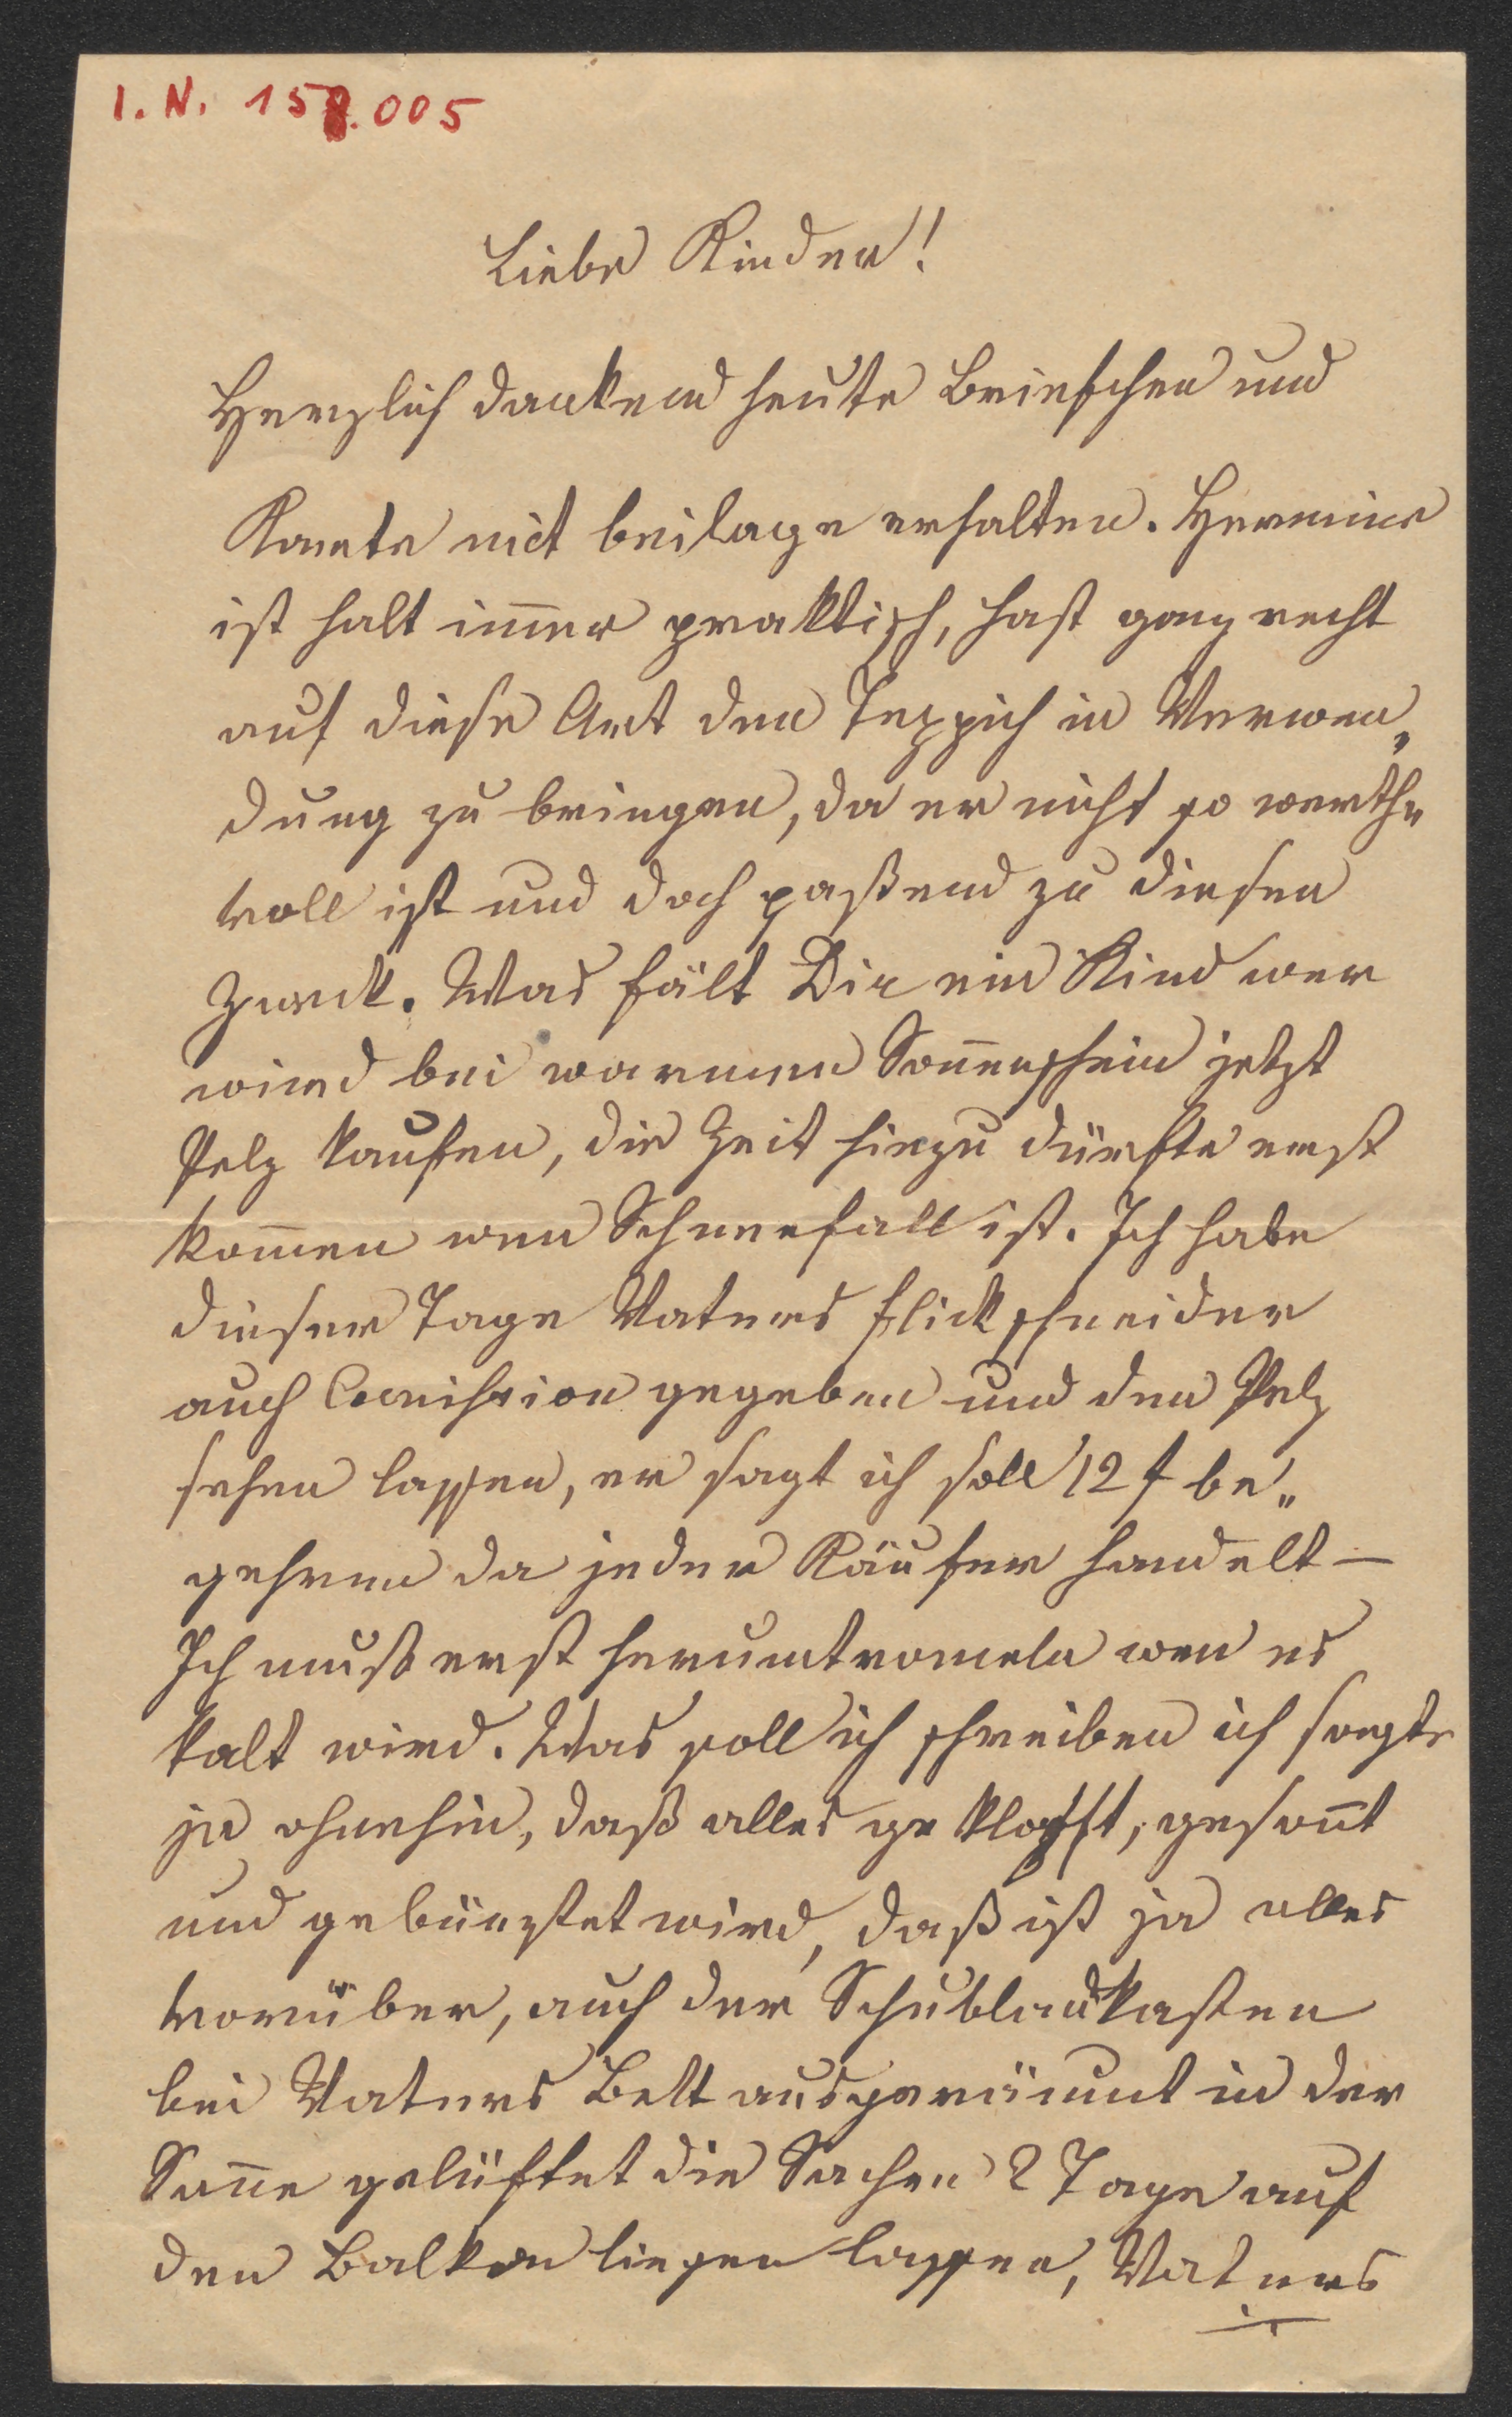 I. N. 158.005
Liebe Kinder!
Herzlich dankend heute Briefchen und
Karte mit beilage erhalten. Hermine
ist halt im̄er praktisch, hast ganz recht
auf diese Art den Teppich in Verwen„
dung zu bringen, da er nicht so werth„
voll ist und doch paßend zu diesen
Zweck. Was fält Dir ein Kind wer
wird bei warmen Son̄enschein jetzt
Pelz kaufen, die Zeit hiezu dürfte erst
kom̄en wen Schneefall ist. Ich habe
dieser Tage Vaters Flickschneider
auch Comission gegeben und den Pelz
sehen lassen, er sagt ich soll 12 f be„
gehren da jeder Käufer handelt —
Ich muß erst herumtromeln wen es
kalt wird. Was soll ich schreiben ich sagte
ja ohnehin, daß alles geklopft, geson̄t
und gebürstet wird, daß ist ja alles
vorüber, auch der Schubladkasten
bei Vaters Bett ausgeräumt in der
Son̄e gelüftet die Sachen 2 Tage auf
den Balkon liegen lassen, Vaters